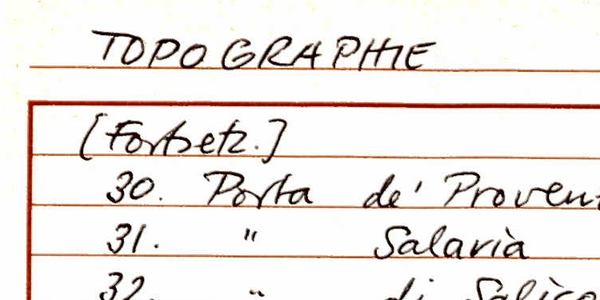 TOPOGRAPHIE
[Fortsetz.]
30. Porta de' Proven
31. " Salaria
32. " di Salice